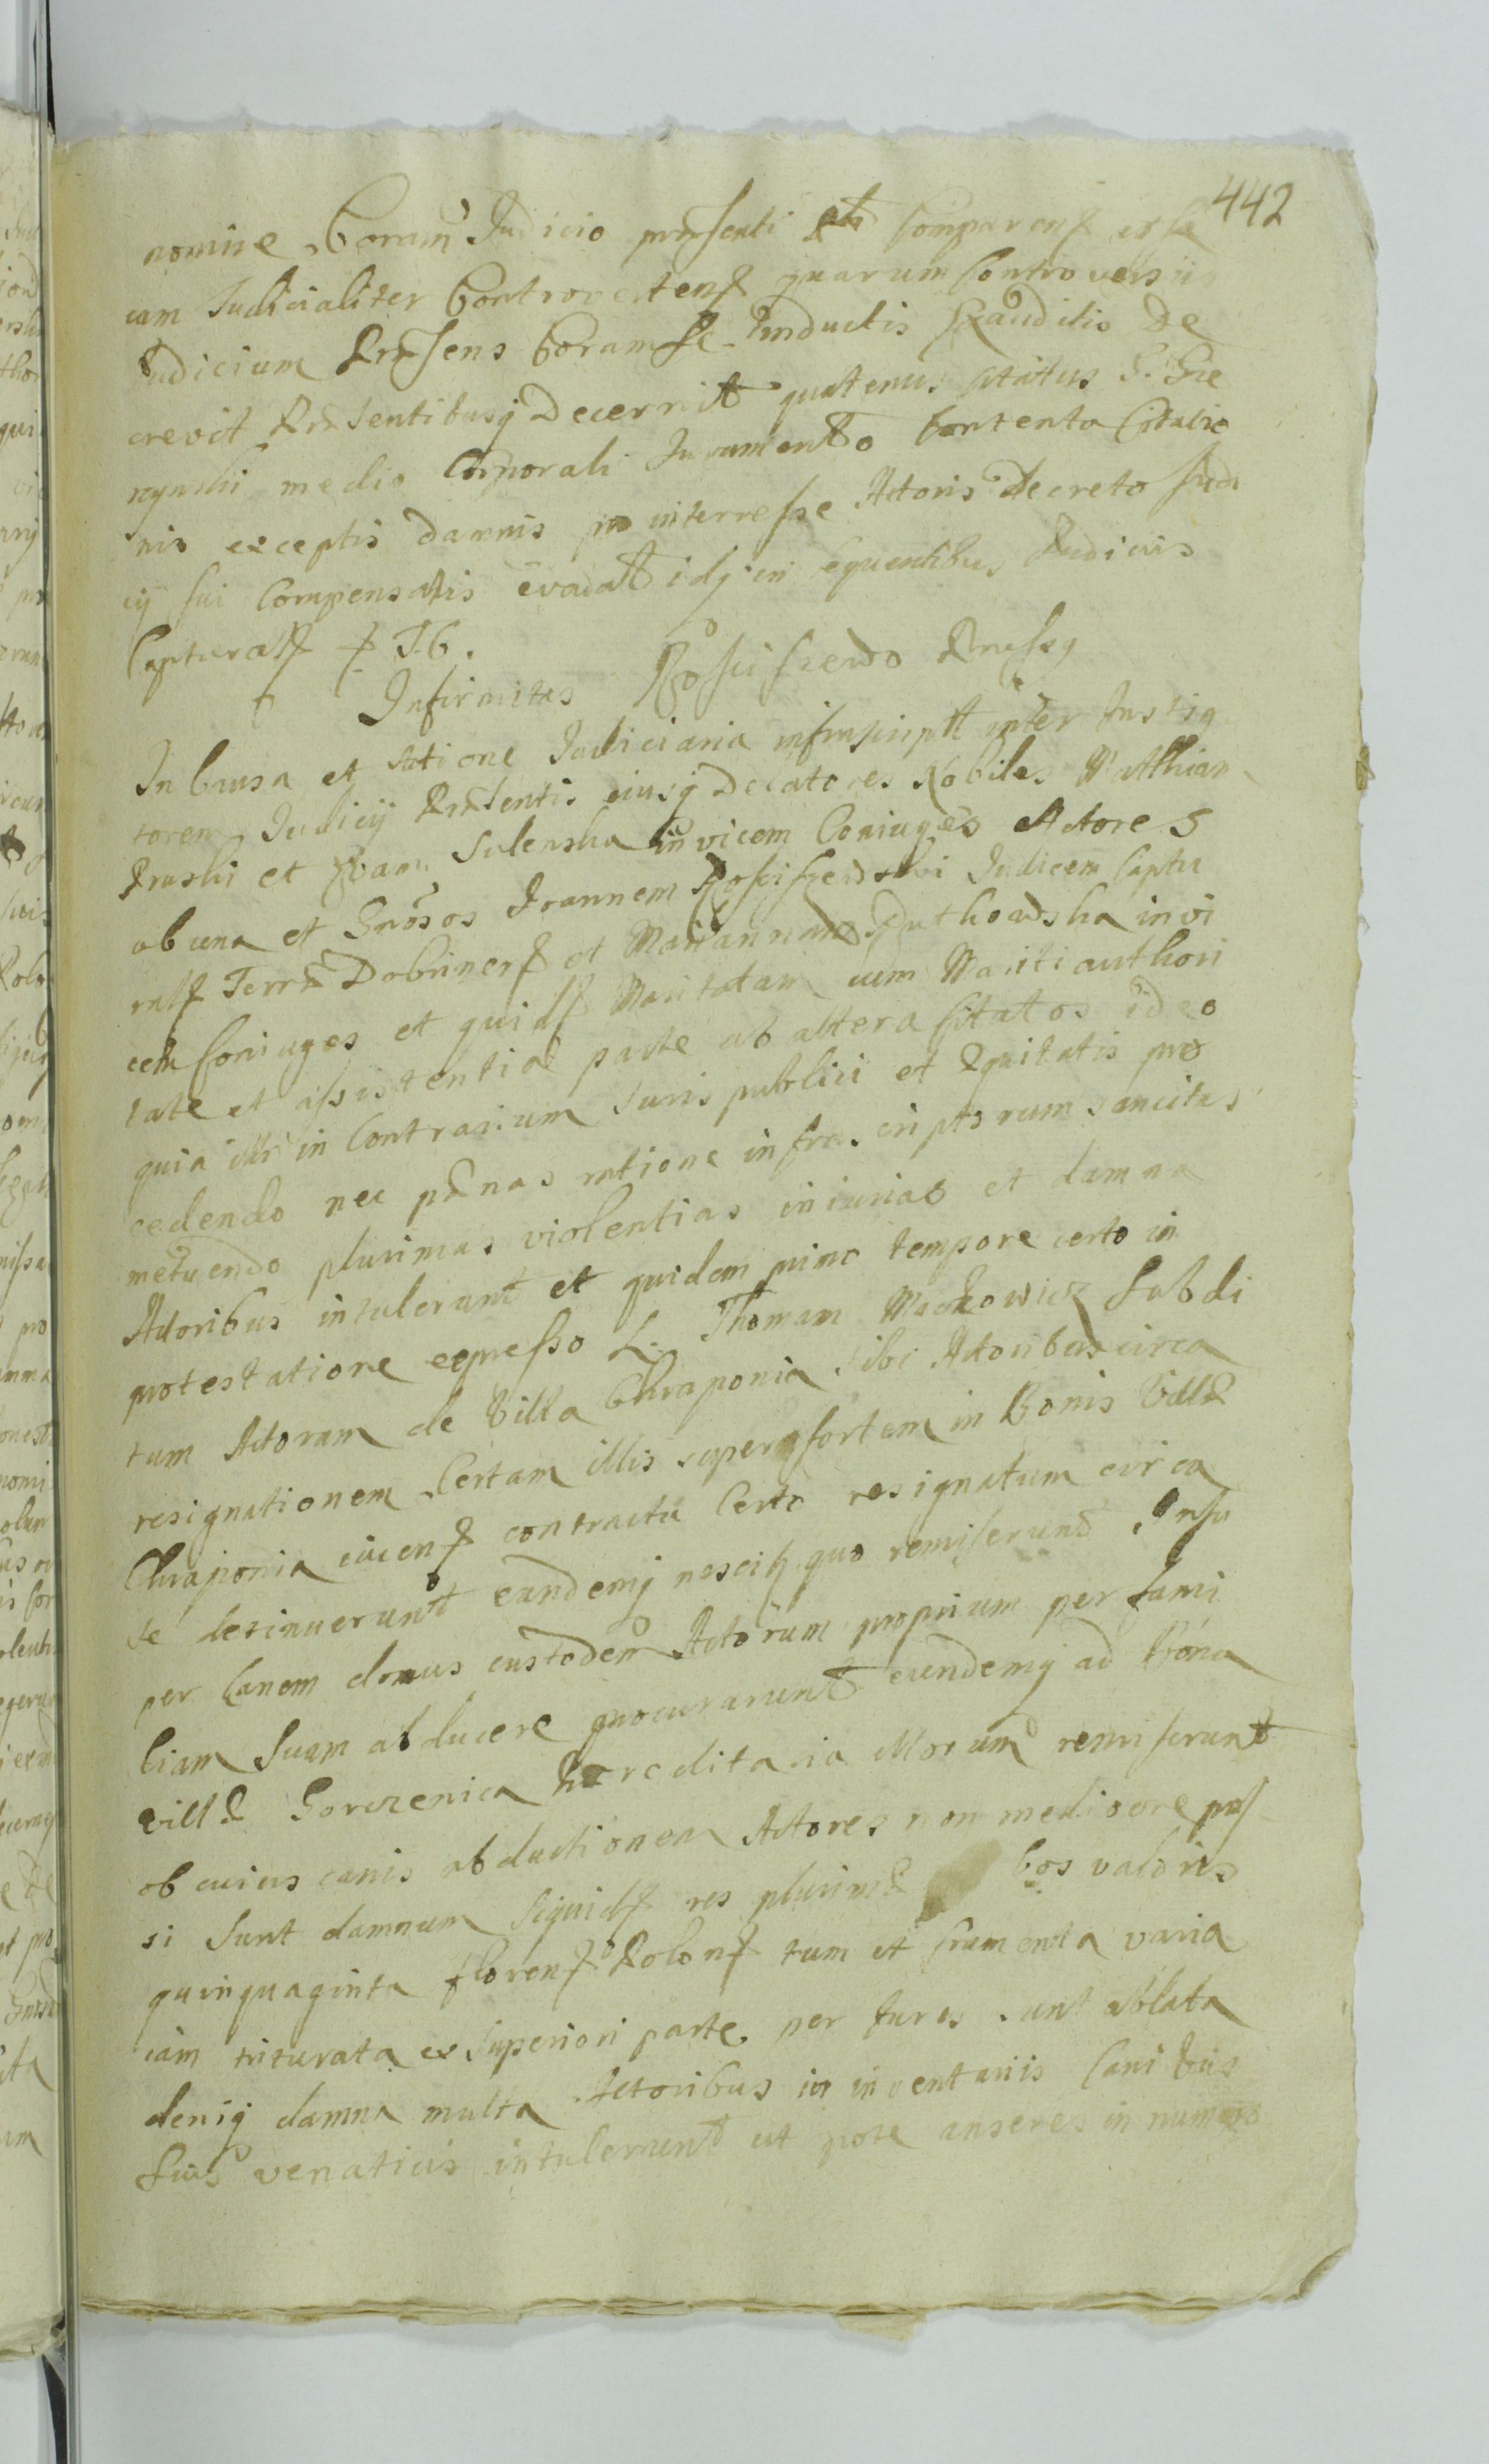 442
nomine Coram Judicio præsenti Comparen et se
cum Judicialiter Controverten quarum Controversiis
Judicium Præsens Coram se inductis Exauditis De
crevit Præsentibusq Decernit quatenus Citatus G. Gre
medio Corporali Juramento Contenta Citatio
nis exceptis damnis pro interresse Actoris Decreto Judi
cij sui Compensatis evadat idq in sequentibus Judiciis
Captural
Infirmitas Rościszewo Prusky
In Causa et Actione Judiciaria infrascripta inter Instiga
torem Judicij Præsentis eiusq Delatores Nobiles Matthiam
Pruski et Evam Sulenska invicem Coniuges Actores
ab una et Gnosos Joannem Rosciszewski Judicem Captu
ral Terræ Dobrinen et Mariannam Rutkowska invi
cem Coniuges et quid Maritatam cum Mariti authori
tate et assistentia parte ab altera Citatos ideo
quia in Contrarium Juris publici et Æquitatis pro
cedendo nec pænas ratione infrascriptorum sancitas
metuendo plurimas violentias iniurias et damna
Actoribus intulerunt et quidem primo tempore certo in
protestatione expresso L. Thomam Mackowicz Subdi
tum Actorum de Villa Chraponia sibi Actoribus circa
resignationem Certam illis super sortem in Bonis Villæ
Chraponia iacen contractu Certo resignatum circa
se detinuerunt eundemq nescit quo remiserunt Insu
per Canem domus custodem Actorum proprium per fami
liam Suam abducere procurarunt eundemq ad Bona
villæ Gorczenica hæreditaria illorum remiserunt
ob cuius canis abductionem Actores non mediocre pas
si Sunt damnum Siquid res plurimæ bos valoris
quinquaginta floren Polon tum et frumenta varia
iam triturata ex Superiori parte per fures sunt ablata
deniq damna multa Actoribus in inventariis Canibus
Suis venaticis intulerunt ut pote anseres in numero